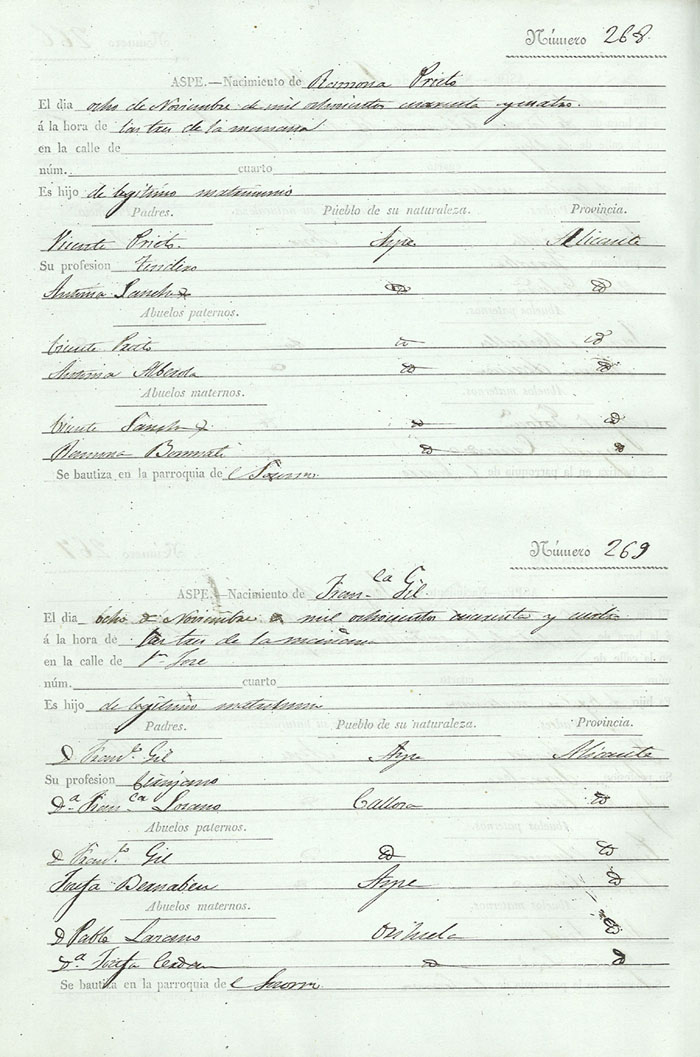 Número 268.
ASPE.—Nacimiento de Ramona Prieto
El dia ocho de Noviembre de mil ochocientos cuarenta y cuatro.
á la hora de las tres de la mañana
en la calle de
núm. cuarto
Es hijo de legitimo matrimonio
Padres. Pueblo de su naturaleza. Provincia.
Vicente Prieto. Aspe Alicante
Su profesion Tendero
Antonia Sanchez id id
Abuelos paternos.
Vicente Prieto id id
Antonia Alberola id id
Abuelos maternos.
Vicente Sanchez id id
Ramona id id
Se bautiza en la parroquia de el Socorro
Número 269
ASPE.—Nacimiento de Fran.ca Gil.
El dia ocho de Noviembre de mil ochocientos cuarenta y cuatro
á la hora de las tres de la mañana
en la calle de Sn Jose
núm. cuarto
Es hijo de legitimo matrimonio
Padres. Pueblo de su naturaleza. Provincia.
D Fran.co Gil Aspe Alicante
Su profesion Cirujano
D.a Fran.ca Lozano Callosa id
Abuelos paternos.
D Fran.co Gil id id
Josefa Bernabeu Aspe id
Abuelos maternos.
D Pablo Lozano Orihuela id
D.a Josefa Cerdan id id
Se bautiza en la parroquia de el Socorro